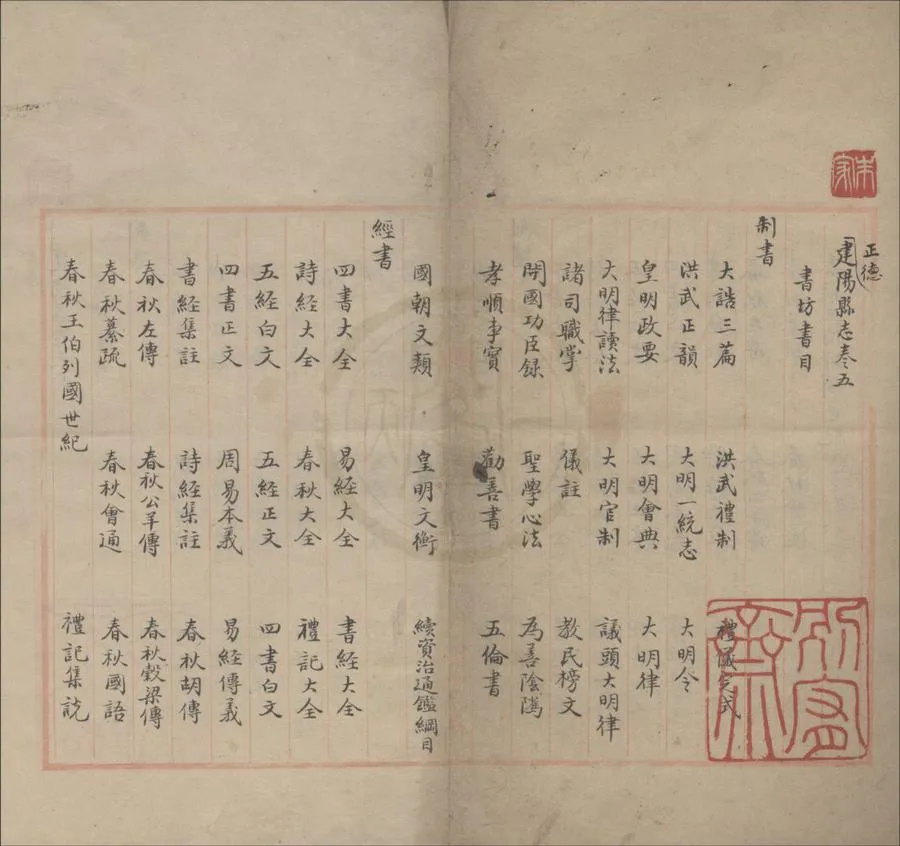 正德
建陽縣志卷五
書坊書目
制書
大誥三篇 洪武禮制 禮儀定式
洪武正韻 大明一統志 大明令
皇明政要 大明會典 大明律
大明律讀法 大明官制 議頭大明律
諸司職掌 儀註 教民榜文
開國功臣錄 聖學心法 為善陰騭
孝順事實 勸善書 五倫書
國朝文類 皇明文衡 續資治通鑑綱目
經書
四書大全 易經大全 書經大全
詩經大全 春秋大全 禮記大全
五經白文 五經正文 四書白文
四書正文 周易本義 易經傳義
書經集註 詩經集註 春秋胡傳
春秋左傳 春秋公羊傳 春秋穀梁傳
春秋纂疏 春秋會通 春秋國語
春秋王伯列國世紀 禮記集説
朱家